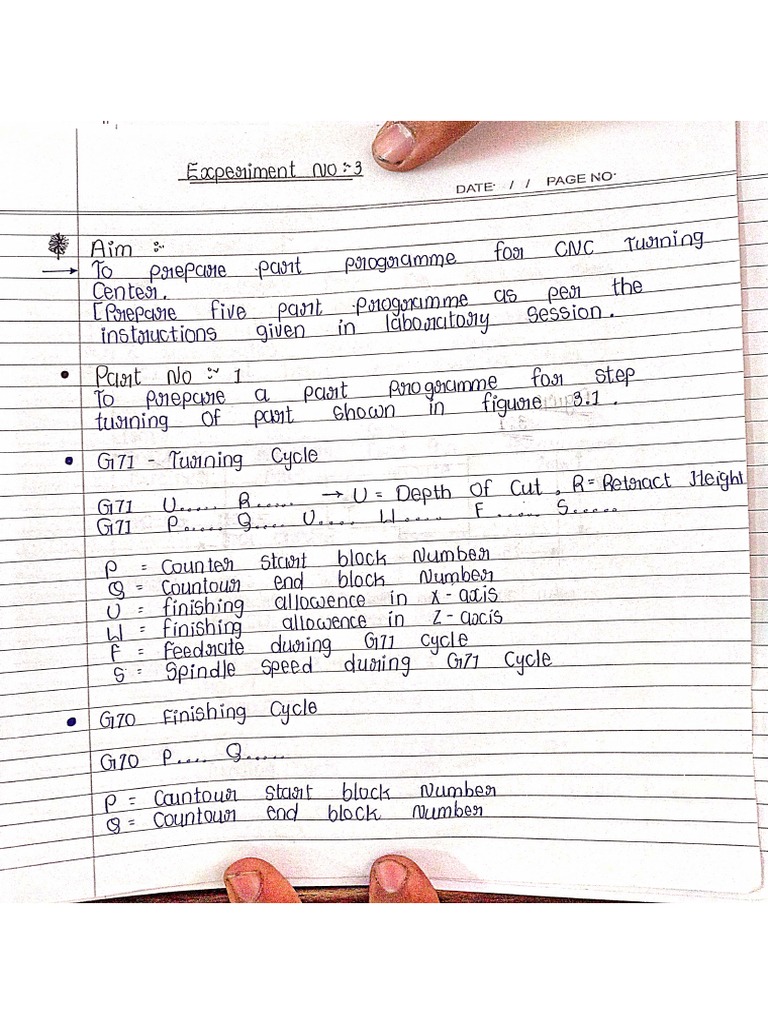 Experiment No :- 3
DATE· / / PAGE NO·
Aim :-
→ To prepare part programme for CNC Turning
Center.
[Prepare five part programme as per the
instructions given in laboratory session.
• Part No :- 1
To prepare a part programme for step
turning of part shown in figure 3.1.
• G71 - Turning Cycle
G71 U..... R..... → U = Depth of Cut, R = Retract Height
G71 P..... Q.... U..... W..... F ..... S......
P = Counter start block Number
Q = Countour end block Number
U = finishing allowence in X-axis
W = finishing allowence in Z-axis
F = feedrate during G71 cycle
S = Spindle speed during G71 Cycle
• G70 Finishing Cycle
G70 P.... Q.....
P = Cauntour start block Number
Q = Countour end block Number